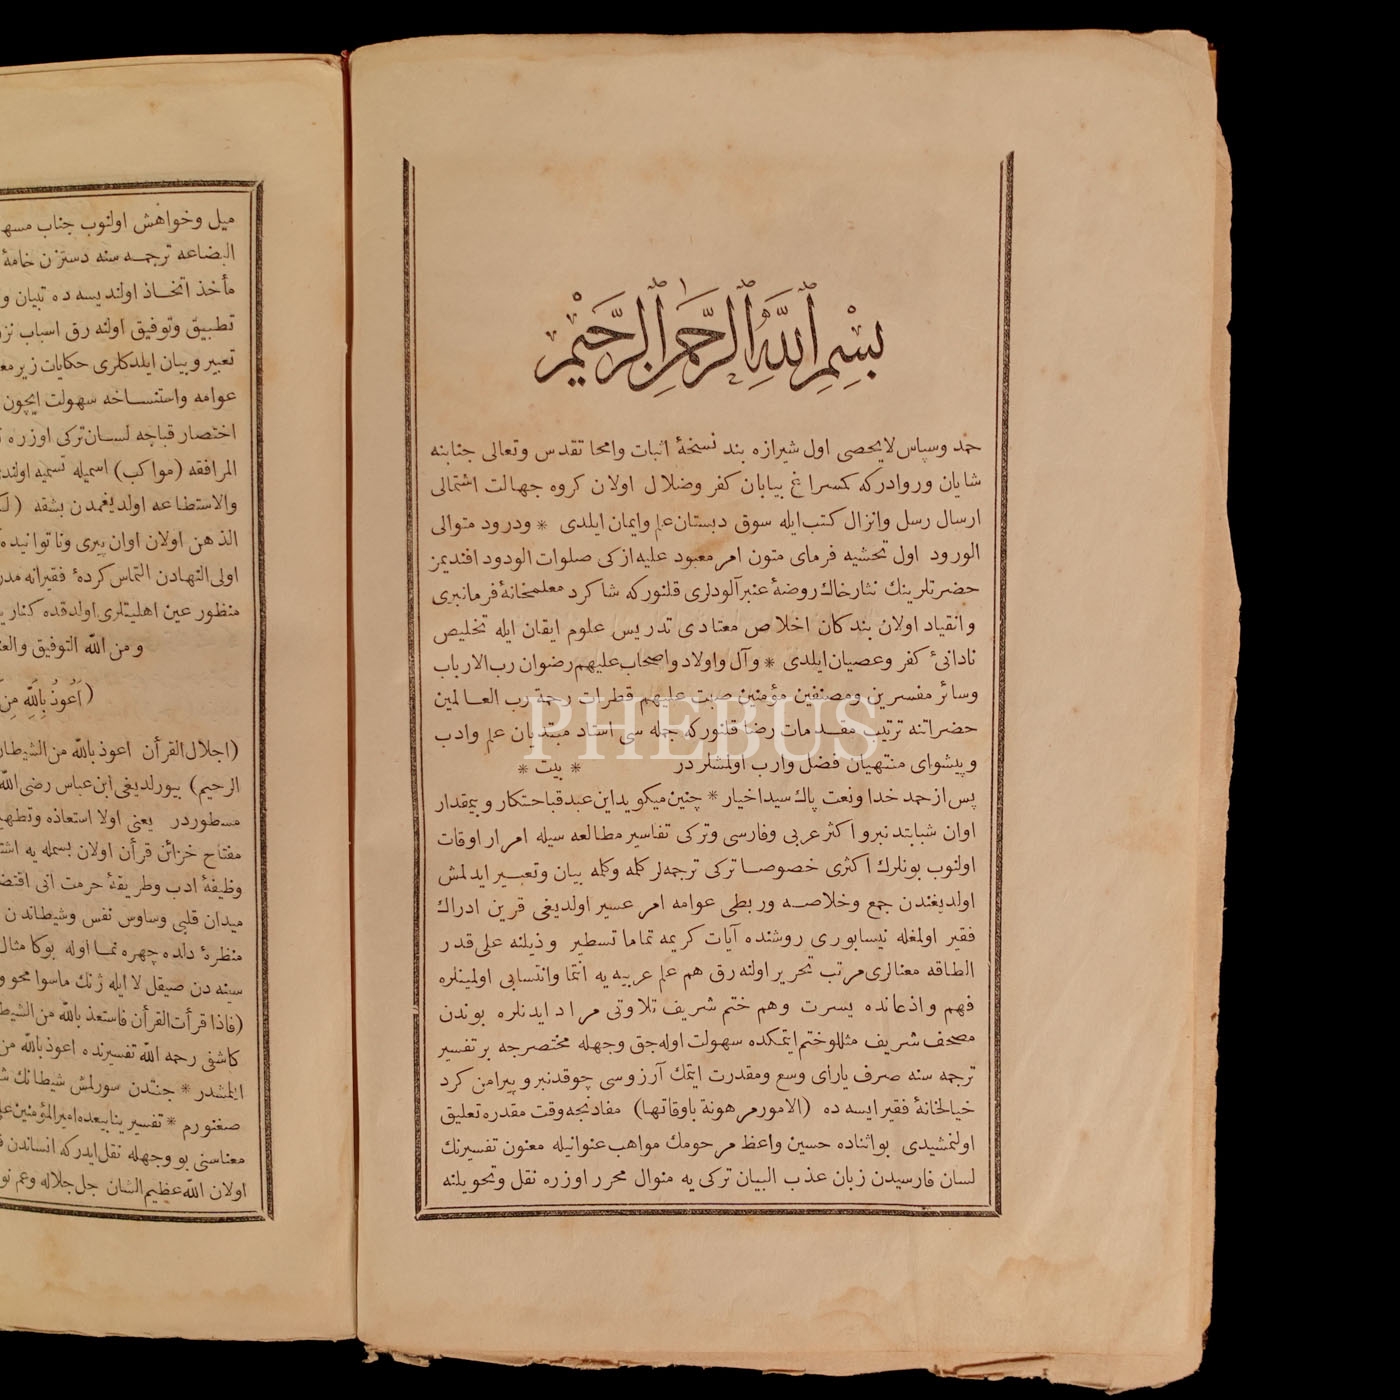 بسم الله الرحمن الرحيم
حمد وسپاس لايحصى اول شيرازه بند نسخۀ اثبات وامحا تقدس وتعالى جنابنه
شايان وروادركه كمسراغ بيابان كفر وضلال اولان كروه جهالت اشتمالى
ارسال رسل وانزال كتب ايله سوق دبستان علم وايمان ايلدى * ودرود متوالى
الورود اول تحشيه فرماى متون امر معبود عليه ازكى صلوات الودود افنديمز
حضرتلرينك نثار خاك روضۀ عنبرآلودلرى قلنور كه شاكرد معلمخانۀ فرمانبرى
وانقياد اولان بندكان اخلاص معتادى تدريس علوم ايقان ايله تخليص
نادانىٔ كفر وعصيان ايلدى * وآل واولاد واصحاب عليهم رضوان رب الارباب
وسائر مفسرين ومصنفين مؤمنين صبت عليهم قطرات رحمة رب العالمين
حضراتنه ترتيب مقدمات رضا قلنور كه جمله سى استاد مبتديان علم وادب
وپيشواى منتهيان فضل وارب اولمشلردر * بيت *
پس از حمد خدا ونعت پاك سيد اخيار * چنين ميكويد اين عبد قباحتكار وبيمقدار
اوان شبابتدنبرو اكثر عربى وفارسى وتركى تفاسير مطالعه سيله امرار اوقات
اولنوب بونلرك اكثرى خصوصا تركى ترجمه لر كلمه وكلمه بيان وتعبير ايدلمش
اولديغندن جمع وخلاصه وربطى عوامه امر عسير اولديغى قرين ادراك
فقير اولمغله نيسابورى روشنده آيات كريمه تماما تسطير وذيلنه على قدر
الطاقه معنالرى مرتب تحرير اولنه رق هم علم عربيه يه انتما وانتسابى اولمينلره
فهم واذعانده يسرت وهم ختم شريف تلاوتى مراد ايدنلره بوندن
مصحف شريف مثللو ختم ايتمكده سهولت اوله جق وجهله مختصرجه بر تفسير
ترجمه سنه صرف ياراى وسع ومقدرت ايتمك آرزوسى چوقدنبرو پيرامن كرد
خيالخانۀ فقير ايسه ده (الامور مرهونة باوقاتها) مفادنجه وقت مقدره تعليق
اولنمشيدى بواثناده حسين واعظ مرحومك مواهب عنوانيله معنون تفسيرنك
لسان فارسيدن زبان عذب البيان تركى يه منوال محرر اوزره نقل وتحويلنه
ميل وخواهش اولنوب جناب
البضاعه ترجمه سنه دستزن خامۀ
مأخذ اتخاذ اولنديسه ده تبيان و
تطبيق وتوفيق اولنه رق اسباب
تعبير وبيان ايلدكلرى حكايات زير
عوامه واستنساخه سهولت ايچون
اختصار قباچه لسان تركى اوزره
المرافقه (مواكب) اسميله تسميه
والاستطاعه اولديغمدن بشقه
الذهن اولان اوان پيرى وناتوانيده
اولى النهادن التماس كردۀ فقيرانه
منظور عين اهليتلرى اولدقده كنار
ومن الله التوفيق
(اَعُوذُ بِاللهِ
(اجلال القرأن اعوذ بالله من الشيطان
الرجيم) بيورلديغى ابن عباس رضى الله
مسطوردر يعنى اولا استعاذه
مفتاح خزائن قرأن اولان بسمله يه
وظيفۀ ادب وطريقۀ حرمت انى
ميدان قلبى وساوس نفس وشيطاندن
منظرۀ دلده چهره نما اوله بوكا مثال
سينه دن صيقل لا ايله ژنك ماسوا محو
(فاذا قرأت القرأن فاستعذ بالله من
كاشفى رحمه الله تفسيرنده اعوذ بالله من
ايتمشدر * جنتدن سورلمش شيطانك
صغنورم * تفسير ينابيعده امير المؤمنين
معناسنى بو وجهله نقل ايدر كه انساندن
اولان الله عظيم الشان جل جلاله وعم
PHEBUS